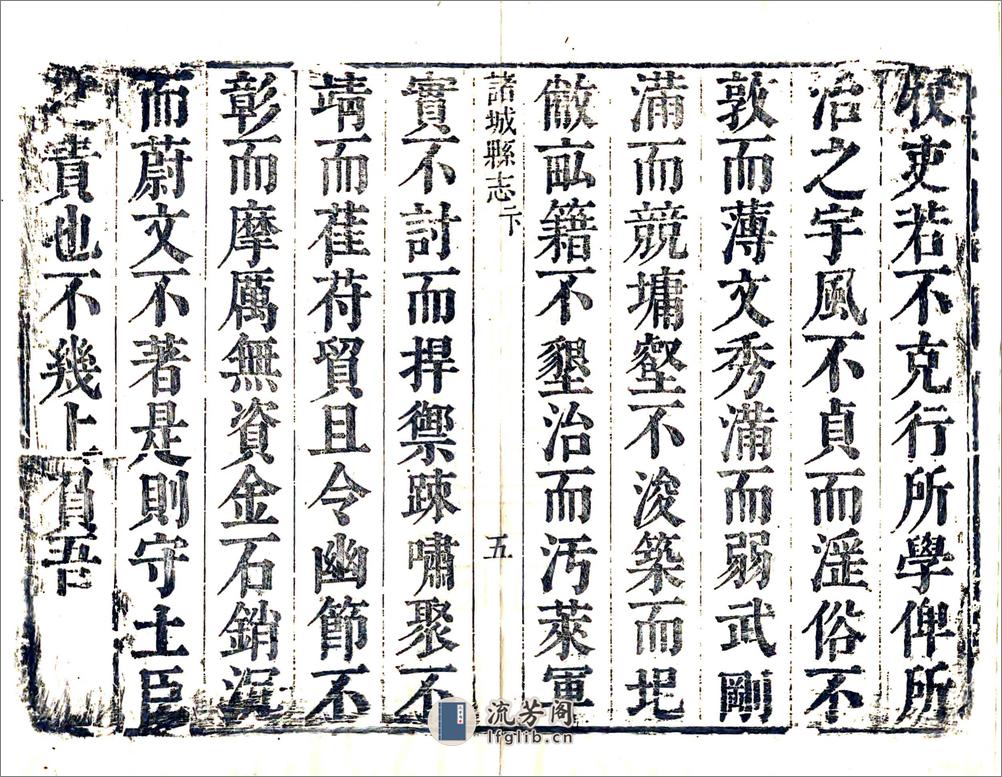 厥吏若不克行所學俾所
治之宇風不貞而淫俗不
敦而薄文秀滿而弱武剛
滿而競墉壑不浚築而圯
敝畝籍不墾治而汚萊軍
諸城縣志 二下 五
實不討而捍禦踈嘯聚不
靖而萑苻貿且令幽節不
彰而摩厲無資金石銷沉
而蔚文不著是則守土臣
之責也不幾上負吾
流芳阁
lfglib.cn